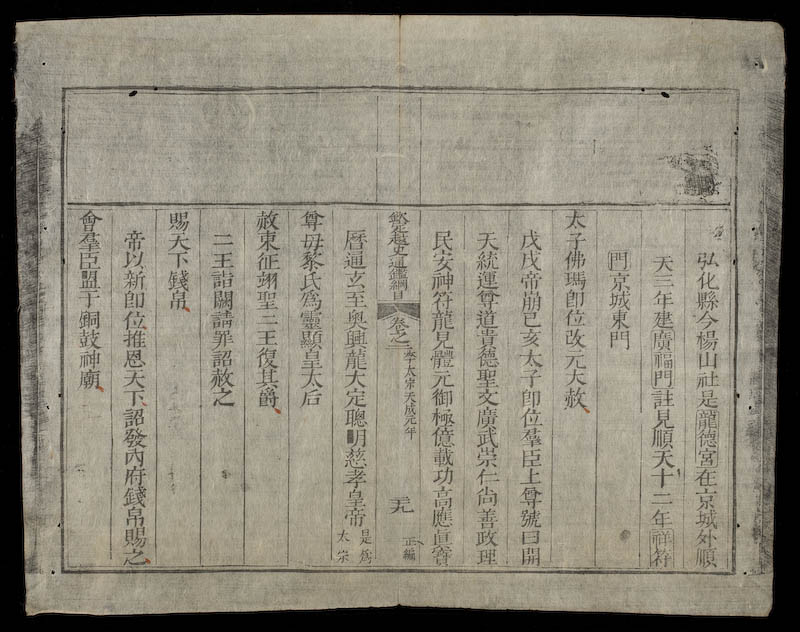 弘化縣今楊山社是龍德宮在京城外順
天三年建廣福門註見順天十二年祥符
門京城東門
太子佛瑪即位改元大赦
戊戌帝崩己亥太子即位羣臣上尊號曰開
天統運尊道貴德聖文廣武崇仁尚善政理
民安神符龍見體元御極億載功高應真寶
欽定越史通鑑綱目 卷之三 李太宗天成元年 正編
曆通玄至奧興龍大定聰明慈孝皇帝 是為太宗
尊母黎氏為靈顯皇太后
赦東征翊聖二王復其爵
二王詣闕請罪詔赦之
賜天下錢帛
帝以新即位推恩天下詔發內府錢帛賜之
會羣臣盟于銅鼓神廟